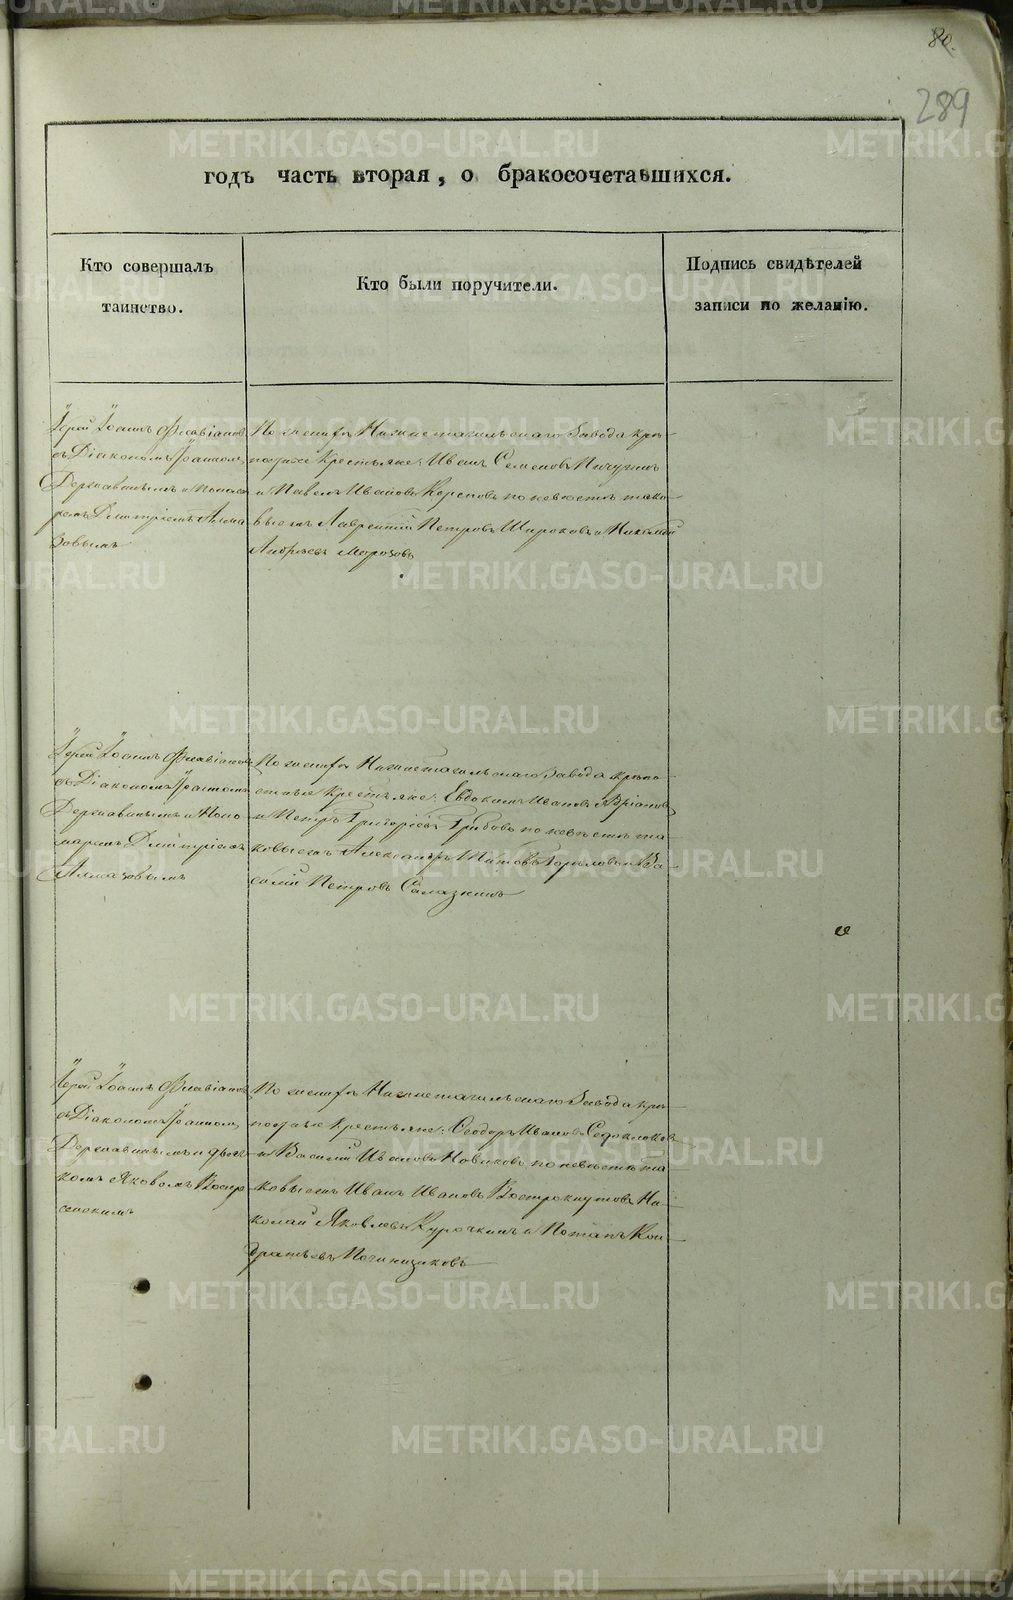 80.
289
годъ часть вторая, о бракосочетавшихся.
Кто совершалъ
таинство.
Кто были поручители.
Подпись свидѣтелей
записи по желанію.
Іерей Іоаннъ Флавіановъ
съ Діакономъ Іоанном
Державинымъ и Понома
ремъ Дмитріемъ Алма
зовымъ
По женихѣ Нижнетагильскаго Завода крѣ-
постные Крестьяне: Иванъ Семеновъ Пичугинъ
и Павелъ Ивановъ по невѣстѣ тако-
вые жъ Лаврентій Петровъ Широковъ и Николай
Андреевъ Морозовъ
Іерей Іоаннъ Флавіановъ
съ Діакономъ Іоанномъ
Державинымъ и Поно
маремъ Дмитріемъ
Алмазовымъ
По женихѣ Нижнетагильскаго Завода крѣпо-
стные Крестьяне: Евдокимъ Ивановъ
и Петръ Григорьевъ Грибовъ по невѣстѣ та-
ковые жъ Александръ Титовъ Горыловъ и Ва-
силій Петровъ
Іерей Іоаннъ Флавіановъ
съ Діакономъ Іоанном
Державинымъ и дьяч
комъ Яковомъ Воскре
сенскимъ
По женихѣ Нижнетагильскаго Завода крѣ-
постные Крестьяне: Ѳеодоръ Ивановъ
и Василій Ивановъ Новиковъ, по невѣстѣ та-
ковые жъ Иванъ Ивановъ Вострокнутовъ Ни-
колай Яковлевъ Курочкинъ и Потапъ Кон
дратьевъ
METRIKI.GASO-URAL.RU